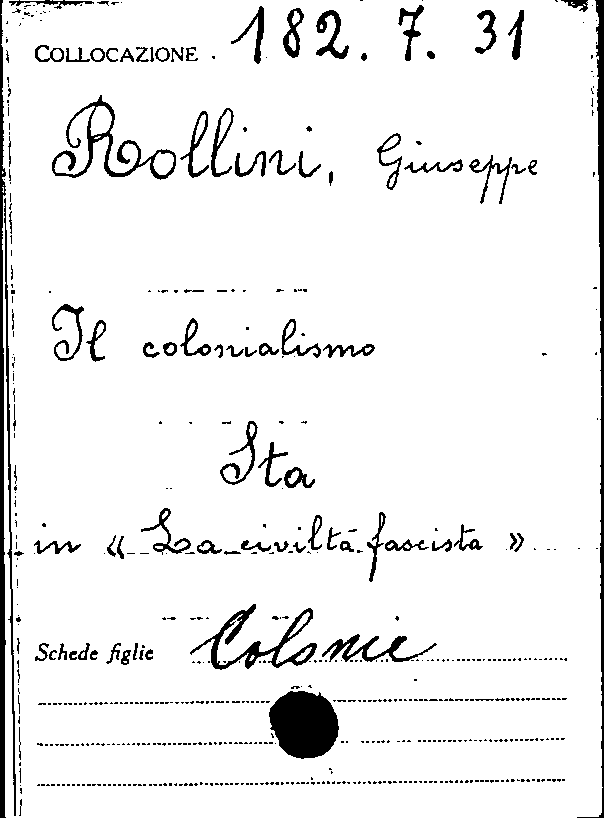 COLLOCAZIONE . 182. 7. 31
Rollini, Giuseppe
Il colonialismo
Sta
in « La civiltà fascista »
Schede figlie Colonie